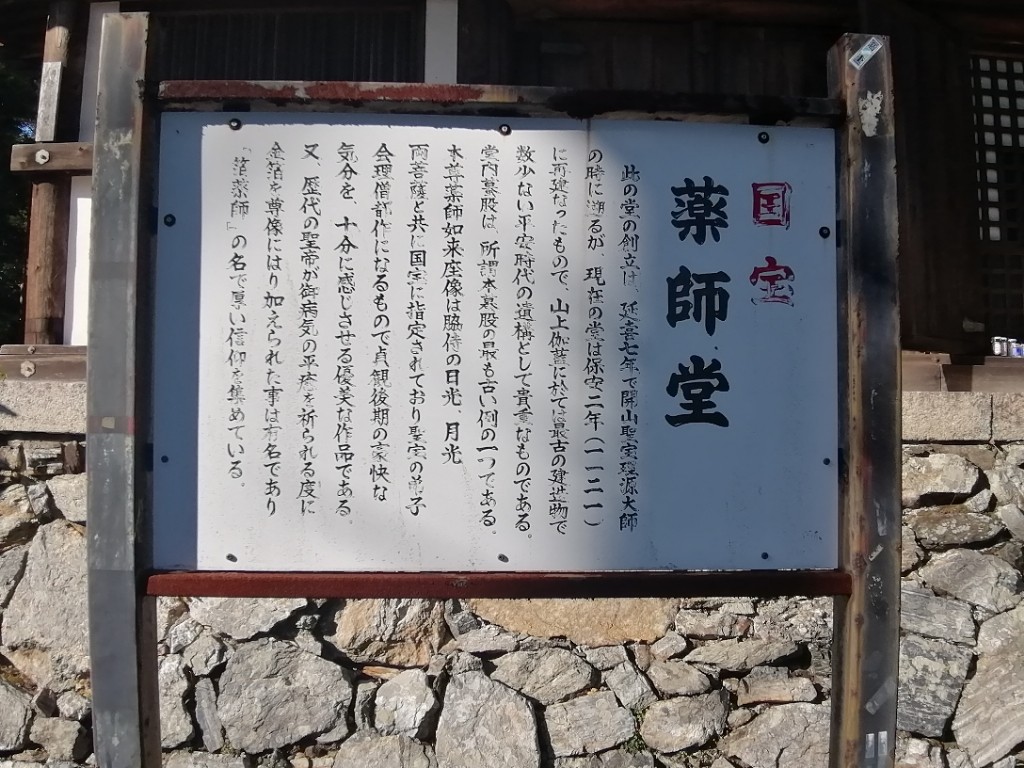 国宝
薬師堂
此の堂の創立は、延喜七年で開山聖宝理源大師
の時に遡るが、現在の堂は保安二年(一一二一)
に再建なったもので、山上伽藍に於ては最古の建造物で
数少ない平安時代の遺構として貴重なものである。
堂内蟇股は、所謂本蟇股の最も古い例の一つである。
本尊薬師如来座像は脇侍の日光、月光
両菩薩と共に国宝に指定されており聖宝の弟子
会理僧都作になるもので貞観後期の豪快な
気分を、十分に感じさせる優美な作品である。
又、歴代の聖帝が御病気の平癒を祈られる度に
金箔を尊像にはり加えられた事は有名であり
「箔薬師」の名で厚い信仰を集めている。